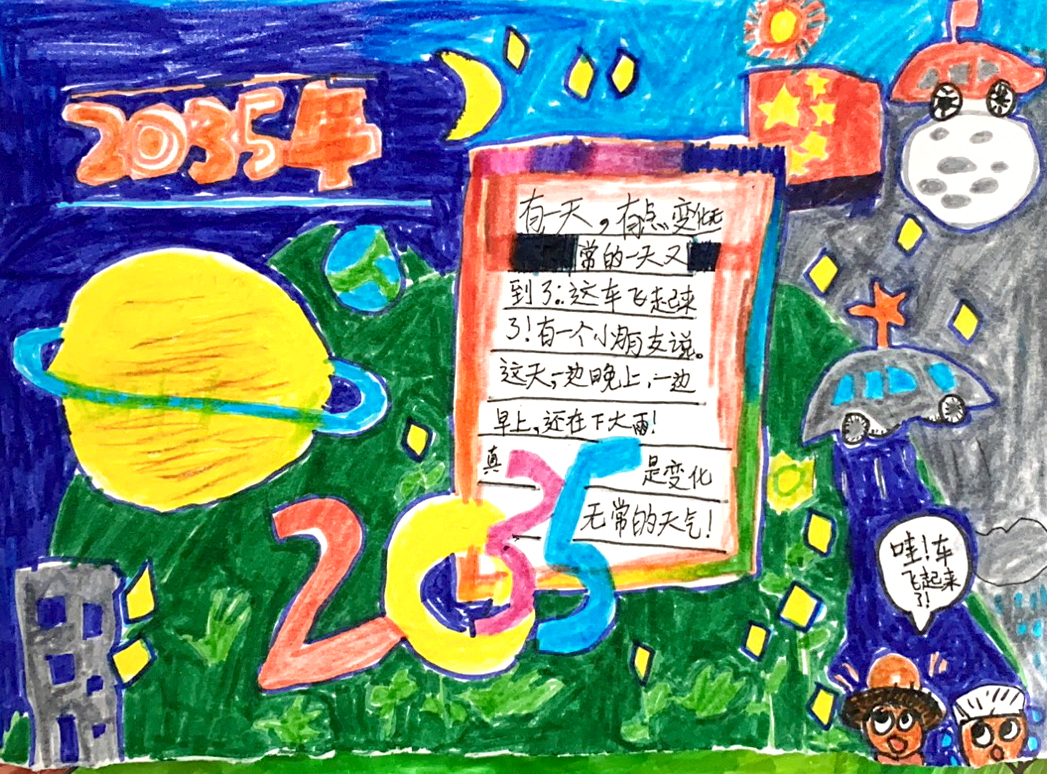 2035年
有一天,有点变化无
常的一天又
到了:这车飞起来
了!有一个小朋友说。
这天,一边晚上,一边
早上,还在下大雨!
真 是变化
无常的天气!
2035
哇!车
飞起来
了!